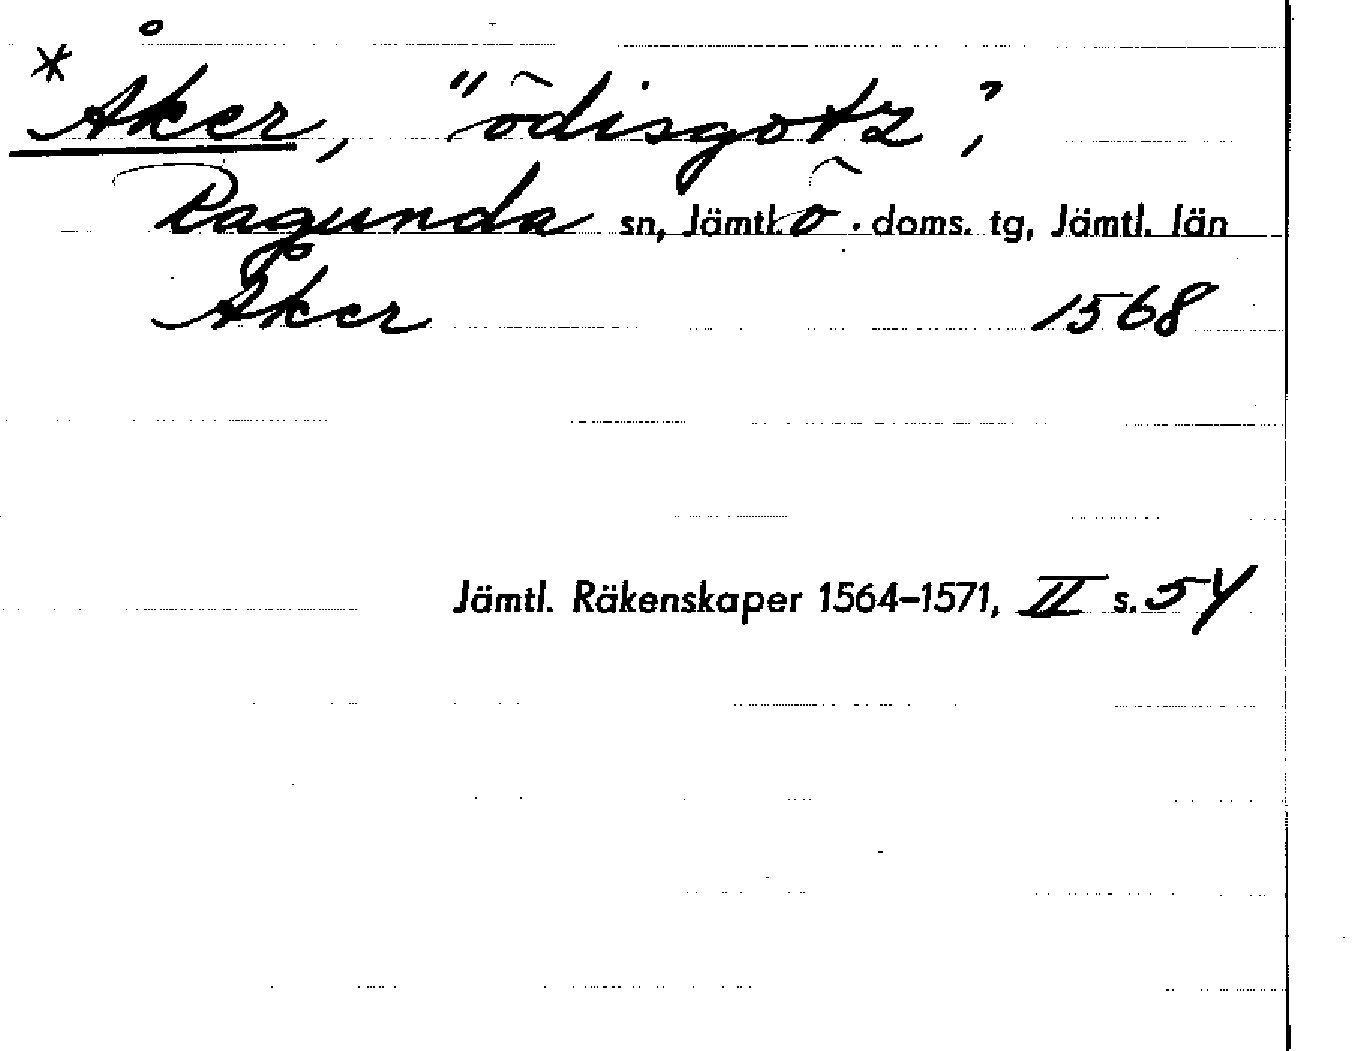 *Åker, "ödisgotz",
Ragunda sn, Jämtl. ö. doms. tg, Jämtl. län
Åker 1568
Jämtl. Räkenskaper 1564–1571, II s. 54